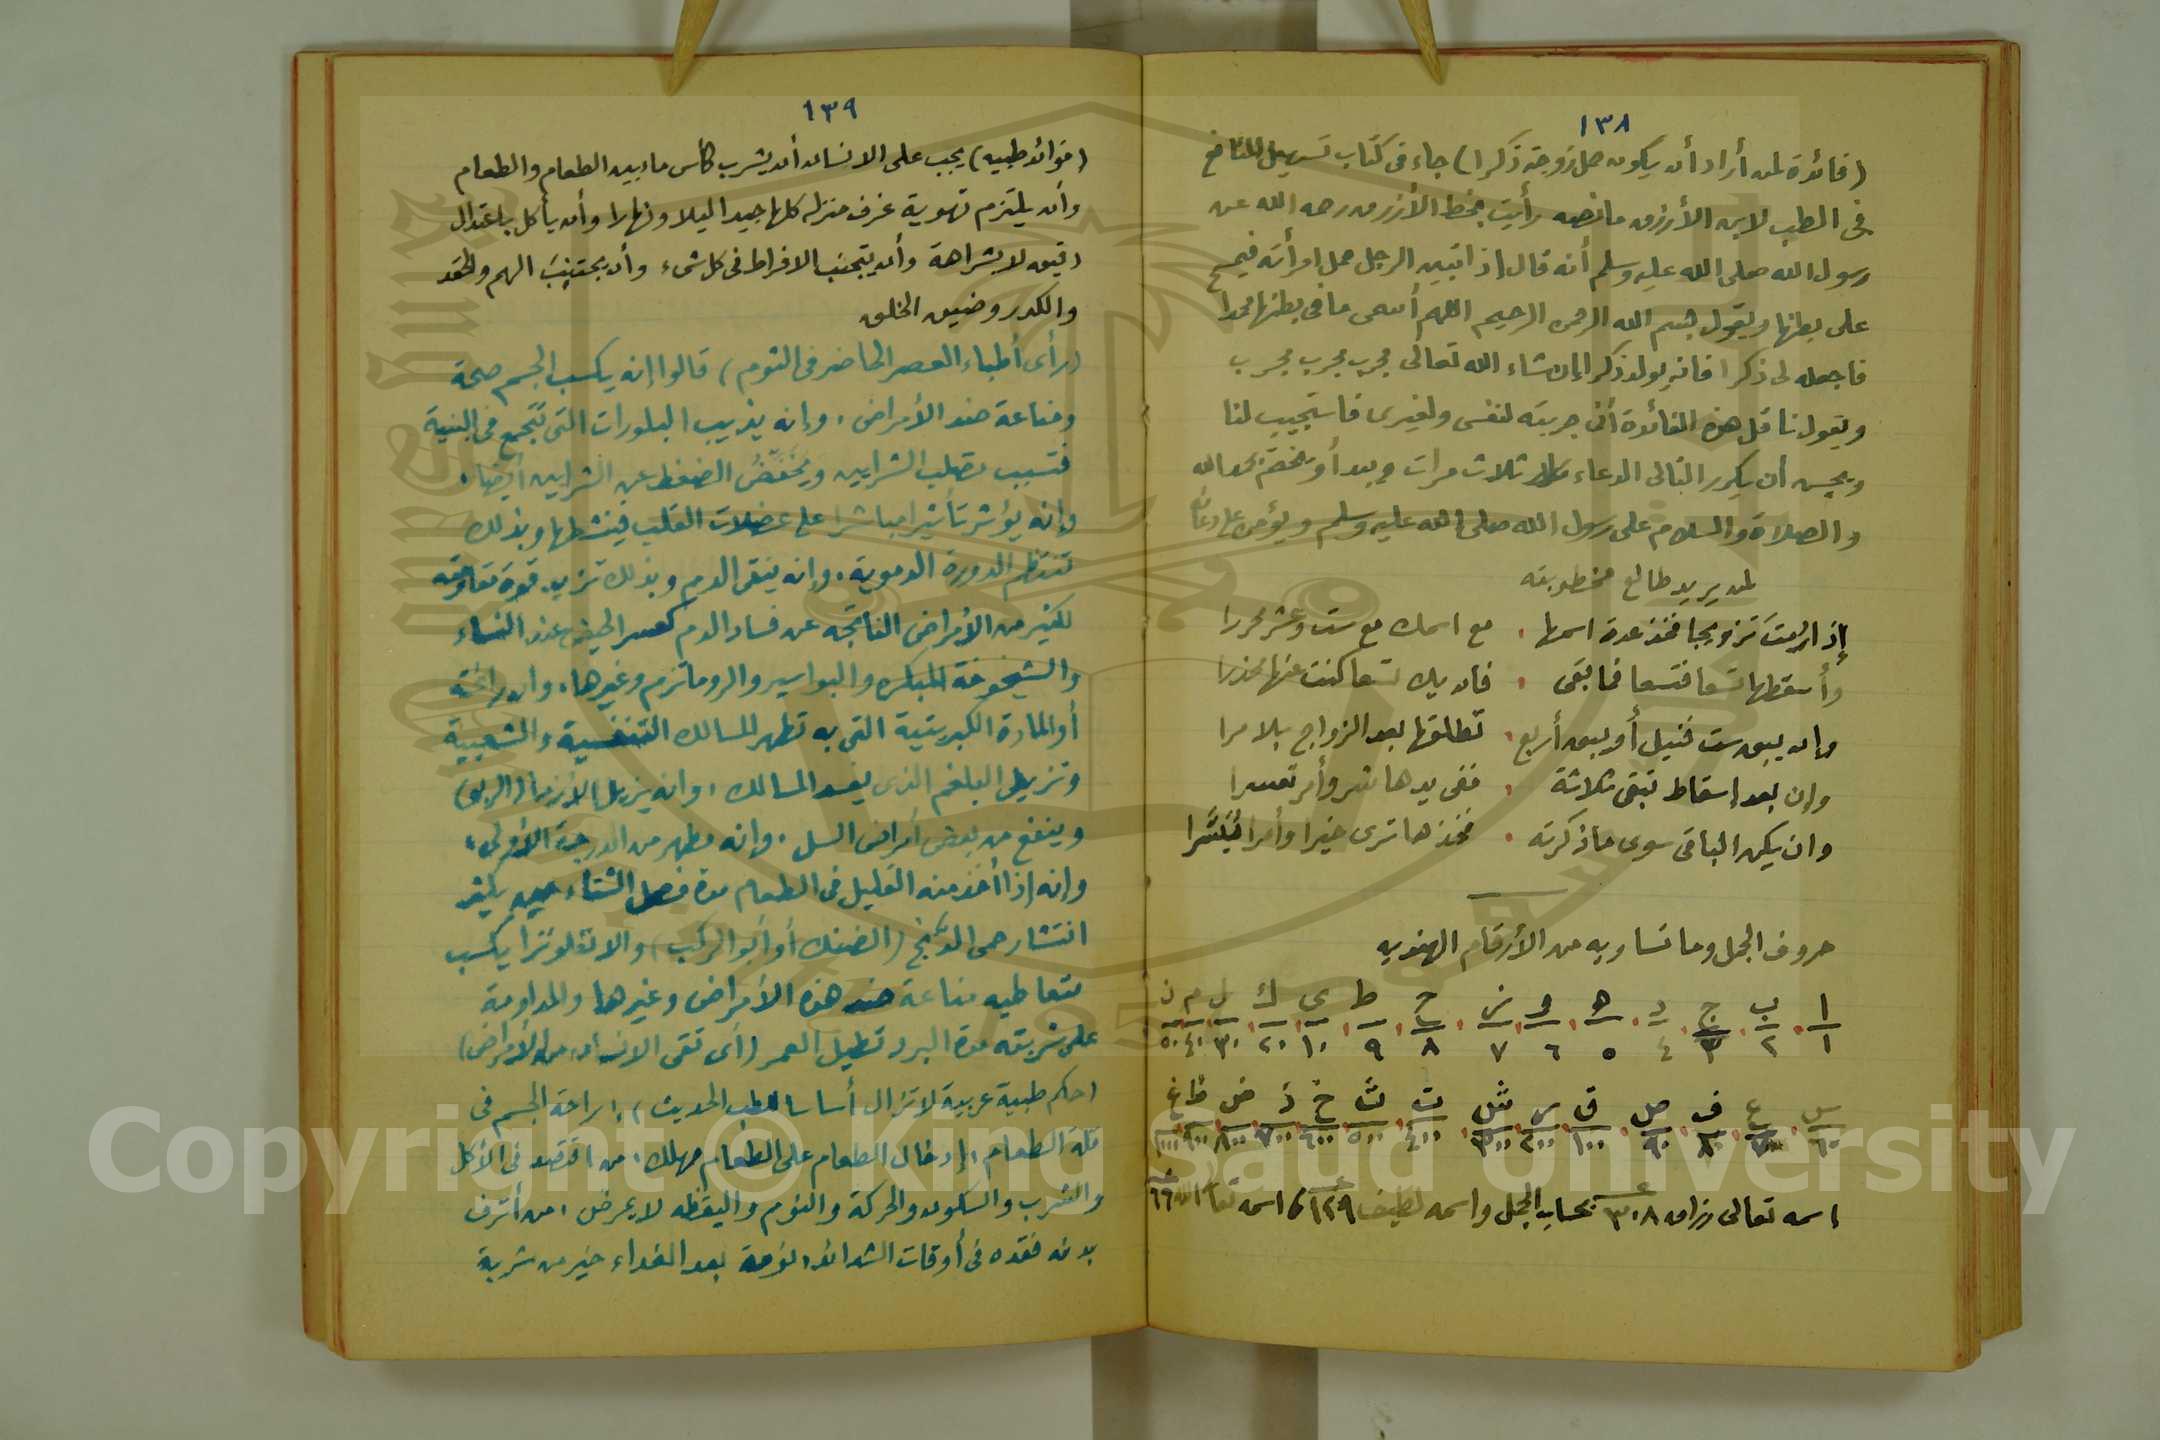 ١٣٨
(فائدة لمن أراد أن يكون حمل زوجته ذكرا) جاء في كتاب تسهيل المنافع
في الطب لابن الأزرق ما نصه رأيت بخط الأزرق رحمه الله عن
رسول الله صلى الله عليه وسلم أنه قال إذا تبين الرجل حمل امرأته فيمسح
على بطنها ويقول بسم الله الرحمن الرحيم اللهم أسمى ما في بطنها محمدا
فاجعله لى ذكرا فانه يولد ذكرا إن شاء الله تعالى مجرب مجرب مجرب
ويقول ناقل هذه الفائدة أنى جربته لنفسى ولغيرى فاستجيب لنا
ويحسن أن يكرر التالى الدعاء ثلاث مرات ويبدأ ويختم بحمد الله
والصلاة والسلام على رسول الله صلى الله عليه وسلم ويؤمن على دعائه
لمن يريد طالع مخطوبته
إذا رمت تزويجا فخذ عدة اسمها ، مع اسمك مع ست وعشر محررا
وأسقطها تسعا فتسعا فما بقى ، فان يك تسعا كنت عنها محذرا
وإن يبق ست قيل أو يبق أربع ، تطلقها بعد الزواج بلا مرا
وإن بعد إسقاط تبقى ثلاثة ، ففى يدها شر وأمر تعسرا
وان يكن الباقى سوى ما ذكرته ، فخذها ترى خيرا وأمرا تيسرا
حروف الجمل وما تساويه من الأرقام الهندية
ا ب ج د ه و ز ح ط ى ك ل م ن
١ ٢ ٣ ٤ ٥ ٦ ٧ ٨ ٩ ١٠ ٢٠ ٣٠ ٤٠ ٥٠
س ع ف ص ق ر ش ت ث خ ذ ض ظ غ
٦٠ ٧٠ ٨٠ ٩٠ ١٠٠ ٢٠٠ ٣٠٠ ٤٠٠ ٥٠٠ ٦٠٠ ٧٠٠ ٨٠٠ ٩٠٠ ١٠٠٠
إسمه تعالى رزاق ٣٠٨ بحساب الجمل واسمه لطيف ١٢٩ اسمه تعالى الله ٦٦
١٣٩
(فوائد طبيه) يجب على الانسان أن يشرب كأس ما بين الطعام والطعام
وأن يلتزم تهوية غرف منزله كلها جيدا ليلا ونهارا وأن يأكل باعتدال
لا بشراهة وأن يتجنب الافراط في كل شىء وأن يجتنب الهم والحقد
والكدر وضيق الخلق
(رأى أطباء العصر الحاضر في الثوم) قالوا إنه يكسب الجسم صحة
ومناعة ضد الأمراض، وإنه يذيب البلورات التى تتجمع في البنية
فتسبب تصلب الشرايين ويخفض الضغط عن الشرايين أيضا.
وإنه يؤثر تأثيرا مباشرا على عضلات القلب فينشطها وبذلك
تنتظم الدورة الدموية، وإنه ينقى الدم وبذلك تزيد قوة مقاومته
لكثير من الأمراض الناتجه عن فساد الدم كعسر الحيض عند النساء
والشيخوخة المبكره والبواسير والروماتزم وغيرها، وان رائحته
أو المادة الكبريتية التى به تطهر المسالك التنفسية والشعبية
وتزيل البلغم الذى يفسد المسالك، وانه يزيل الأزما (الربو)
وينفع من بعض أمراض السل، وإنه مطهر من الدرجة الأولى،
وإنه إذا أخذ منه القليل في الطعام مدة فصل الشتاء حين يكثر
انتشار حمى الدنج (الضنك أو أبو الركب) والانفلونزا يكسب
متعاطيه مناعة ضد هذه الأمراض وغيرها والمداومة
على شربته مدة البرد تطيل العمر (أى تقى الانسان من الأمراض)
(حكم طبية عربية لا تزال أساسا للطب الحديث)، راحة الجسم في
قلة الطعام، إدخال الطعام على الطعام مهلك، من اقتصد في الأكل
والشرب والسكون والحركة والنوم واليقظه لا يمرض، من أترف
بدنه فقده في أوقات الشدائد، نومة بعد الغداء خير من شربة
Copyright © King Saud University
1957